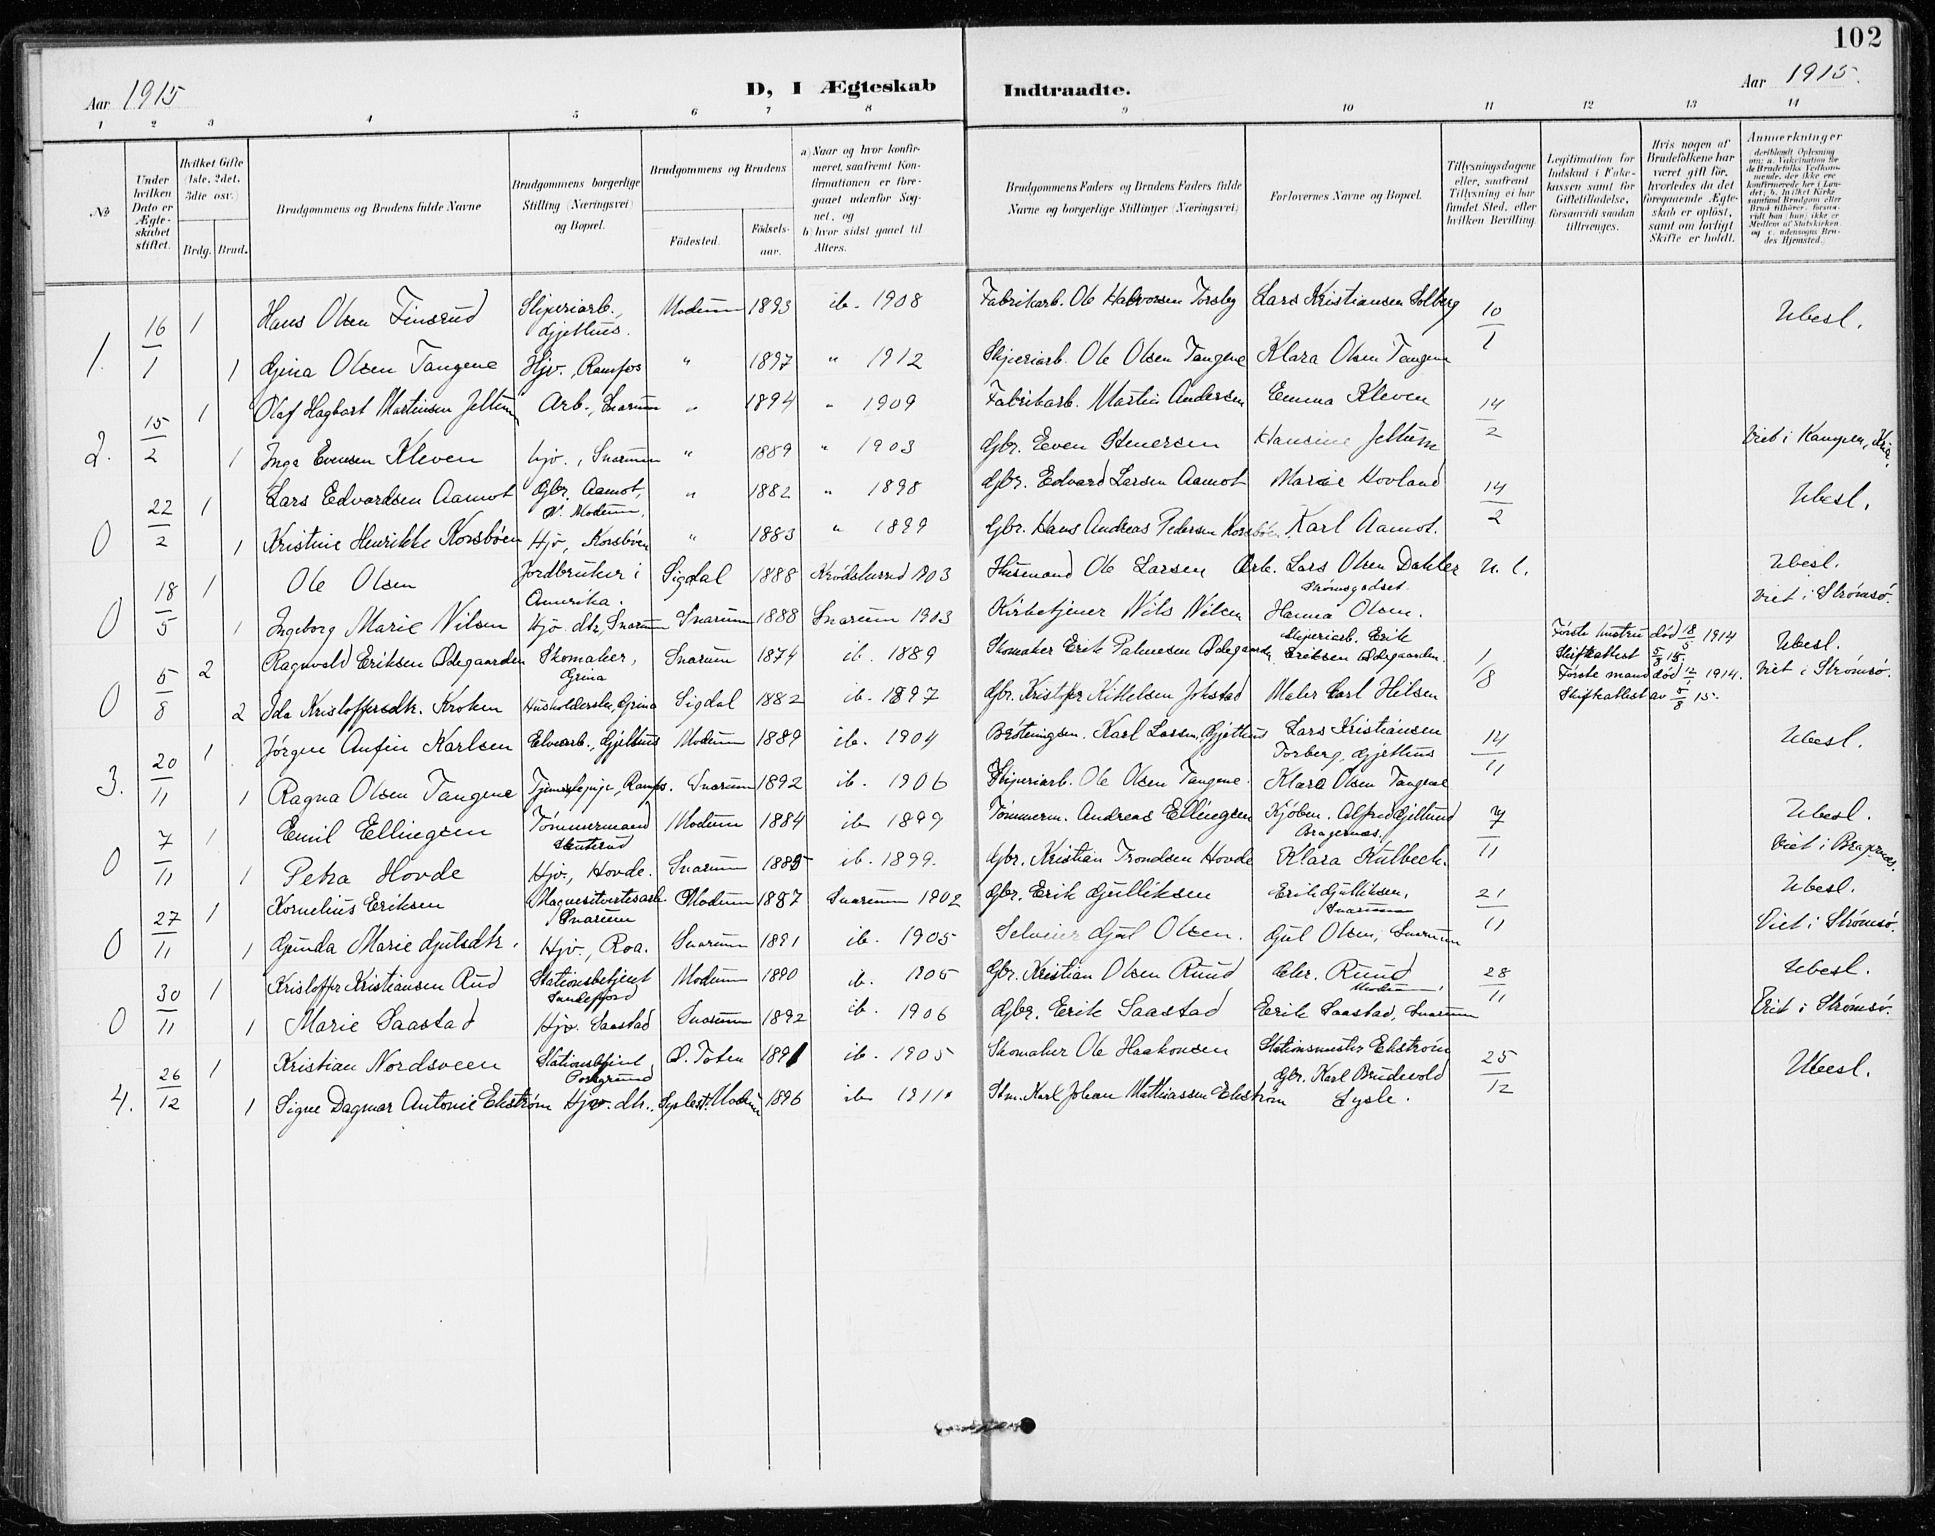 102
Aar 1915
D, I Ægteskab Indtraadte.
Aar 1915.
1 2 3 4 5 6 7 8 9 10 11 12 13 14
No
Under hvilken Dato er Ægteskabet stiftet.
Hvilket Gifte (1ste, 2det, 3die osv.)
Brdg. Brud.
Brudgommens og Brudens fulde Navne
Brudgommens borgerlige Stilling (Næringsvei) og Bopæl.
Brudgommens og Brudens
Födested.
Födselsaar.
a) Naar og hvor konfirmeret, saafremt Konfirmationen er foregaaet udenfor Sognet, og
b) hvor sidst gaaet til Alters.
Brudgommens Faders og Brudens Faders fulde Navne og borgerlige Stillinger (Næringsvei)
Forlovernes Navne og Bopæl.
Tillysningsdagene eller, saafremt Tillysning ei har fundet Sted, efter hvilken Bevilling.
Legitimation for Indskud i Enkekassen samt for Giftetilladelse, forsaavidt saadan tiltrænges.
Hvis nogen af Brudefolkene har været gift før, hvorledes da det foregaaende Ægteskab er oplöst, samt om lovligt Skifte er holdt.
Anmærkninger
1. 16/1 1 Hans Olsen Finsrud Sliperiarb., Gjethus. Modum 1893 ib. 1908 Fabrikarb. Ole Halvorsen Torsby Lars Kristiansen Solberg 10/1 Ubesl.
1 Gjina Olsen Tangene Hjv., Ramfos " 1897 " 1912 Sliperiarb. Ole Olsen Tangene Klara Olsen Tangene
2. 15/2 1 Olaf Hagbart Martinsen Jellum Arb., Snarum " 1894 " 1909 Fabrikarb. Martin Andersen Emma Kleven 14/2
1 Inga Evensen Kleven hjv., Snarum " 1889 " 1903 Gbr. Even Stenersen Hansine Jellum Viet i Kampen, Kria.
0 22/2 1 Lars Edvardsen Aamot Gbr. Aamot, N. Modum. " 1882 " 1898 Gbr. Edvard Larsen Aamot Marie Hovland 14/2 Ubesl.
1 Kristine Henrikke Korsbøen Hjv, Korsbøen " 1883 " 1899 Gbr. Hans Andreas Pedersen Korsbøen Karl Aamot.
0 18/5 1 Ole Olsen Jordbruker i Amerika. Sigdal 1888 Krødsherred 1903 Husmand Ole Larsen Arb. Lars Olsen Dahler Strømsgodset. u. l. Ubesl.
1 Ingeborg Marie Nilsen Hjv. dtr, Snarum Snarum 1888 Snarum 1903 Kirketjener Nils Nilsen Hanna Olsen. Viet i Strømsø.
0 5/8 2 Ragnvald Eriksen Ødegaarden Skomaker, Grina Snarum 1874 ib. 1889 Skomaker Erik Palmesen Ødegaarden Sliperiarb. Erik Eriksen Ødegaarden. 1/8 Første hustru død 18/5 1914 Skifteattest 5/8 15. Ubesl.
2 Ida Kristoffersdtr. Kroken Husholderske, Grina Sigdal 1882 ib. 1897 Gbr. Kristoffer Kittelsen Jokstad Maler Carl Hilsen Første mand død 12/1 1914. Skifteattest av 5/8 15. Viet i Strømsø.
3. 20/11 1 Jørgen Anfin Karlsen Elvearb., Gjethus Modum 1889 ib. 1904 Karl Larsen, Gjethus Lars Kristiansen Torberg, Gjethus 14/11 Ubesl.
1 Ragna Olsen Tangene Tjenestepige, Ramfos. Snarum 1892 ib. 1906 Sliperiarb. Ole Olsen Tangene. Klara Olsen Tangene
0 7/11 1 Emil Ellingsen Tømmermand Modum 1884 ib 1899 Tømmerm. Andreas Ellingsen Kjøbm. Alfred Gjellund Bragernæs. 7/11 Ubesl.
1 Petra Hovde Hjv., Hovde. Snarum 1885 ib. 1899. Gbr. Kristian Trondsen Hovde Klara Kulbeck. Viet i Bragernæs.
0 27/11 1 Kornelius Eriksen Snarum Modum 1887 Snarum 1902 Gbr. Erik Gulliksen Erik Gulliksen, Snarum 21/11 Ubesl.
1 Gunda Marie Gulsdtr. Hjv., Roa. Snarum 1891 ib. 1905 Selveier Gul Olsen. Gul Olsen, Snarum Viet i Strømsø.
0 30/11 1 Kristoffer Kristiansen Rud Stationsbetjent Sandefjord Modum 1890 ib. 1905 Gbr. Kristian Olsen Ruud Chr. Ruud Modum, 28/11 Ubesl.
1 Marie Saastad Hjv. Saastad Snarum 1892 ib. 1906 Gbr. Erik Saastad Erik Saastad, Snarum Viet i Strømsø.
4. 26/12 1 Kristian Nordsveen Stationsbtjent Porsgrund Ø. Toten 1891 ib. 1905 Skomaker Ole Haakonsen Stationsmester Ekstrøm Gbr. Karl Brudevold 25/12 Ubesl.
1 Signe Dagmar Antonie Ekstrøm Hjv. dtr., Sysle st. Modum 1896 ib 1911. Stm. Karl Johan Mathiassen Ekstrøm Sysle.